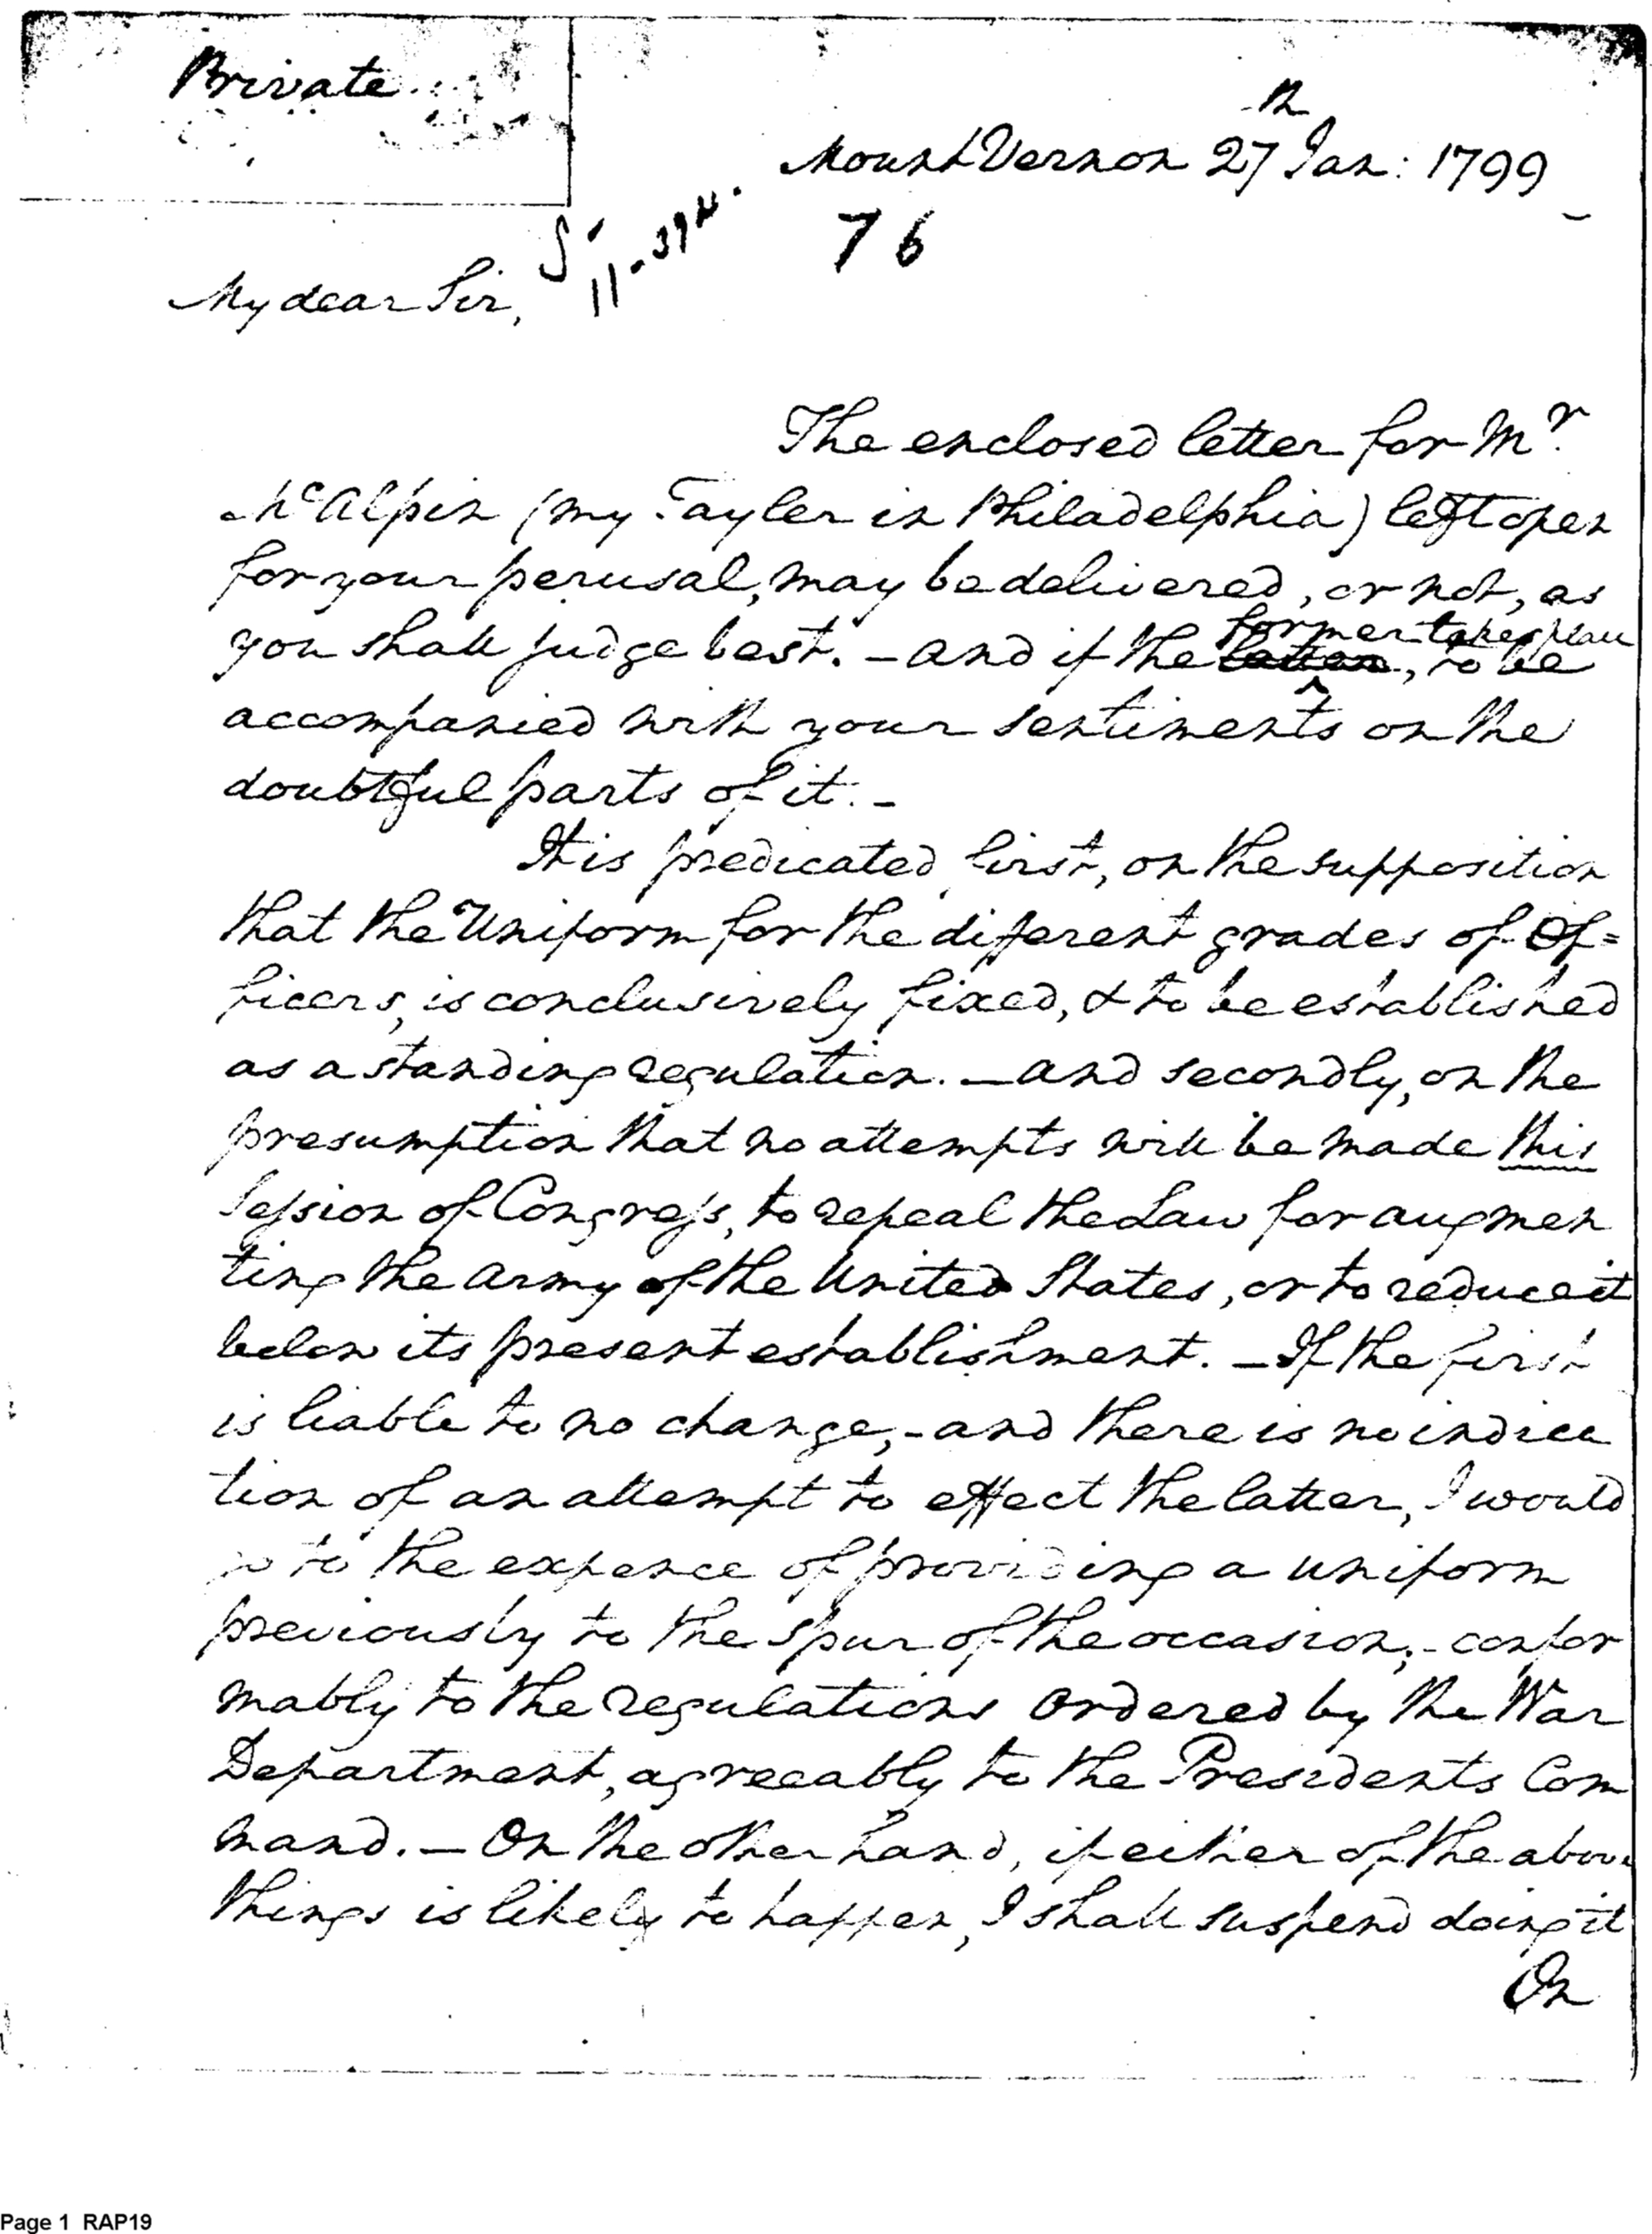 Private
Mount Vernon 27th Jan: 1799
76
My dear Sir,
The enclosed letter for Mr.
McAlpin (my Tayler in Philadelphia) left open
for your perusal, may be delivered, or not, as
you shall judge best. – and if the latter former takes place, to be
accompanied with your sentiments on the
doubtful parts of it. –
It is predicated, first, on the supposition
that the Uniform for the diferent grades of Of=
ficers, is conclusively fixed, & to be established
as a standing regulation. – and secondly, on the
presumption that no attempts will be made this
Session of Congress, to repeal the Law for augmen
ting the Army of the United States, or to reduce it
below its present establishment. – If the first
is liable to no change, – and there is no indica
tion of an attempt to effect the latter, I would
go to the expence of providing a uniform
previously to the spur of the occasion; – confor
mably to the regulations ordered by the War
Department, agreeably to the Presidents Com
mand. – On the other hand, if either of the above
things is likely to happen, I shall suspend doing it
On
Page 1 RAP19